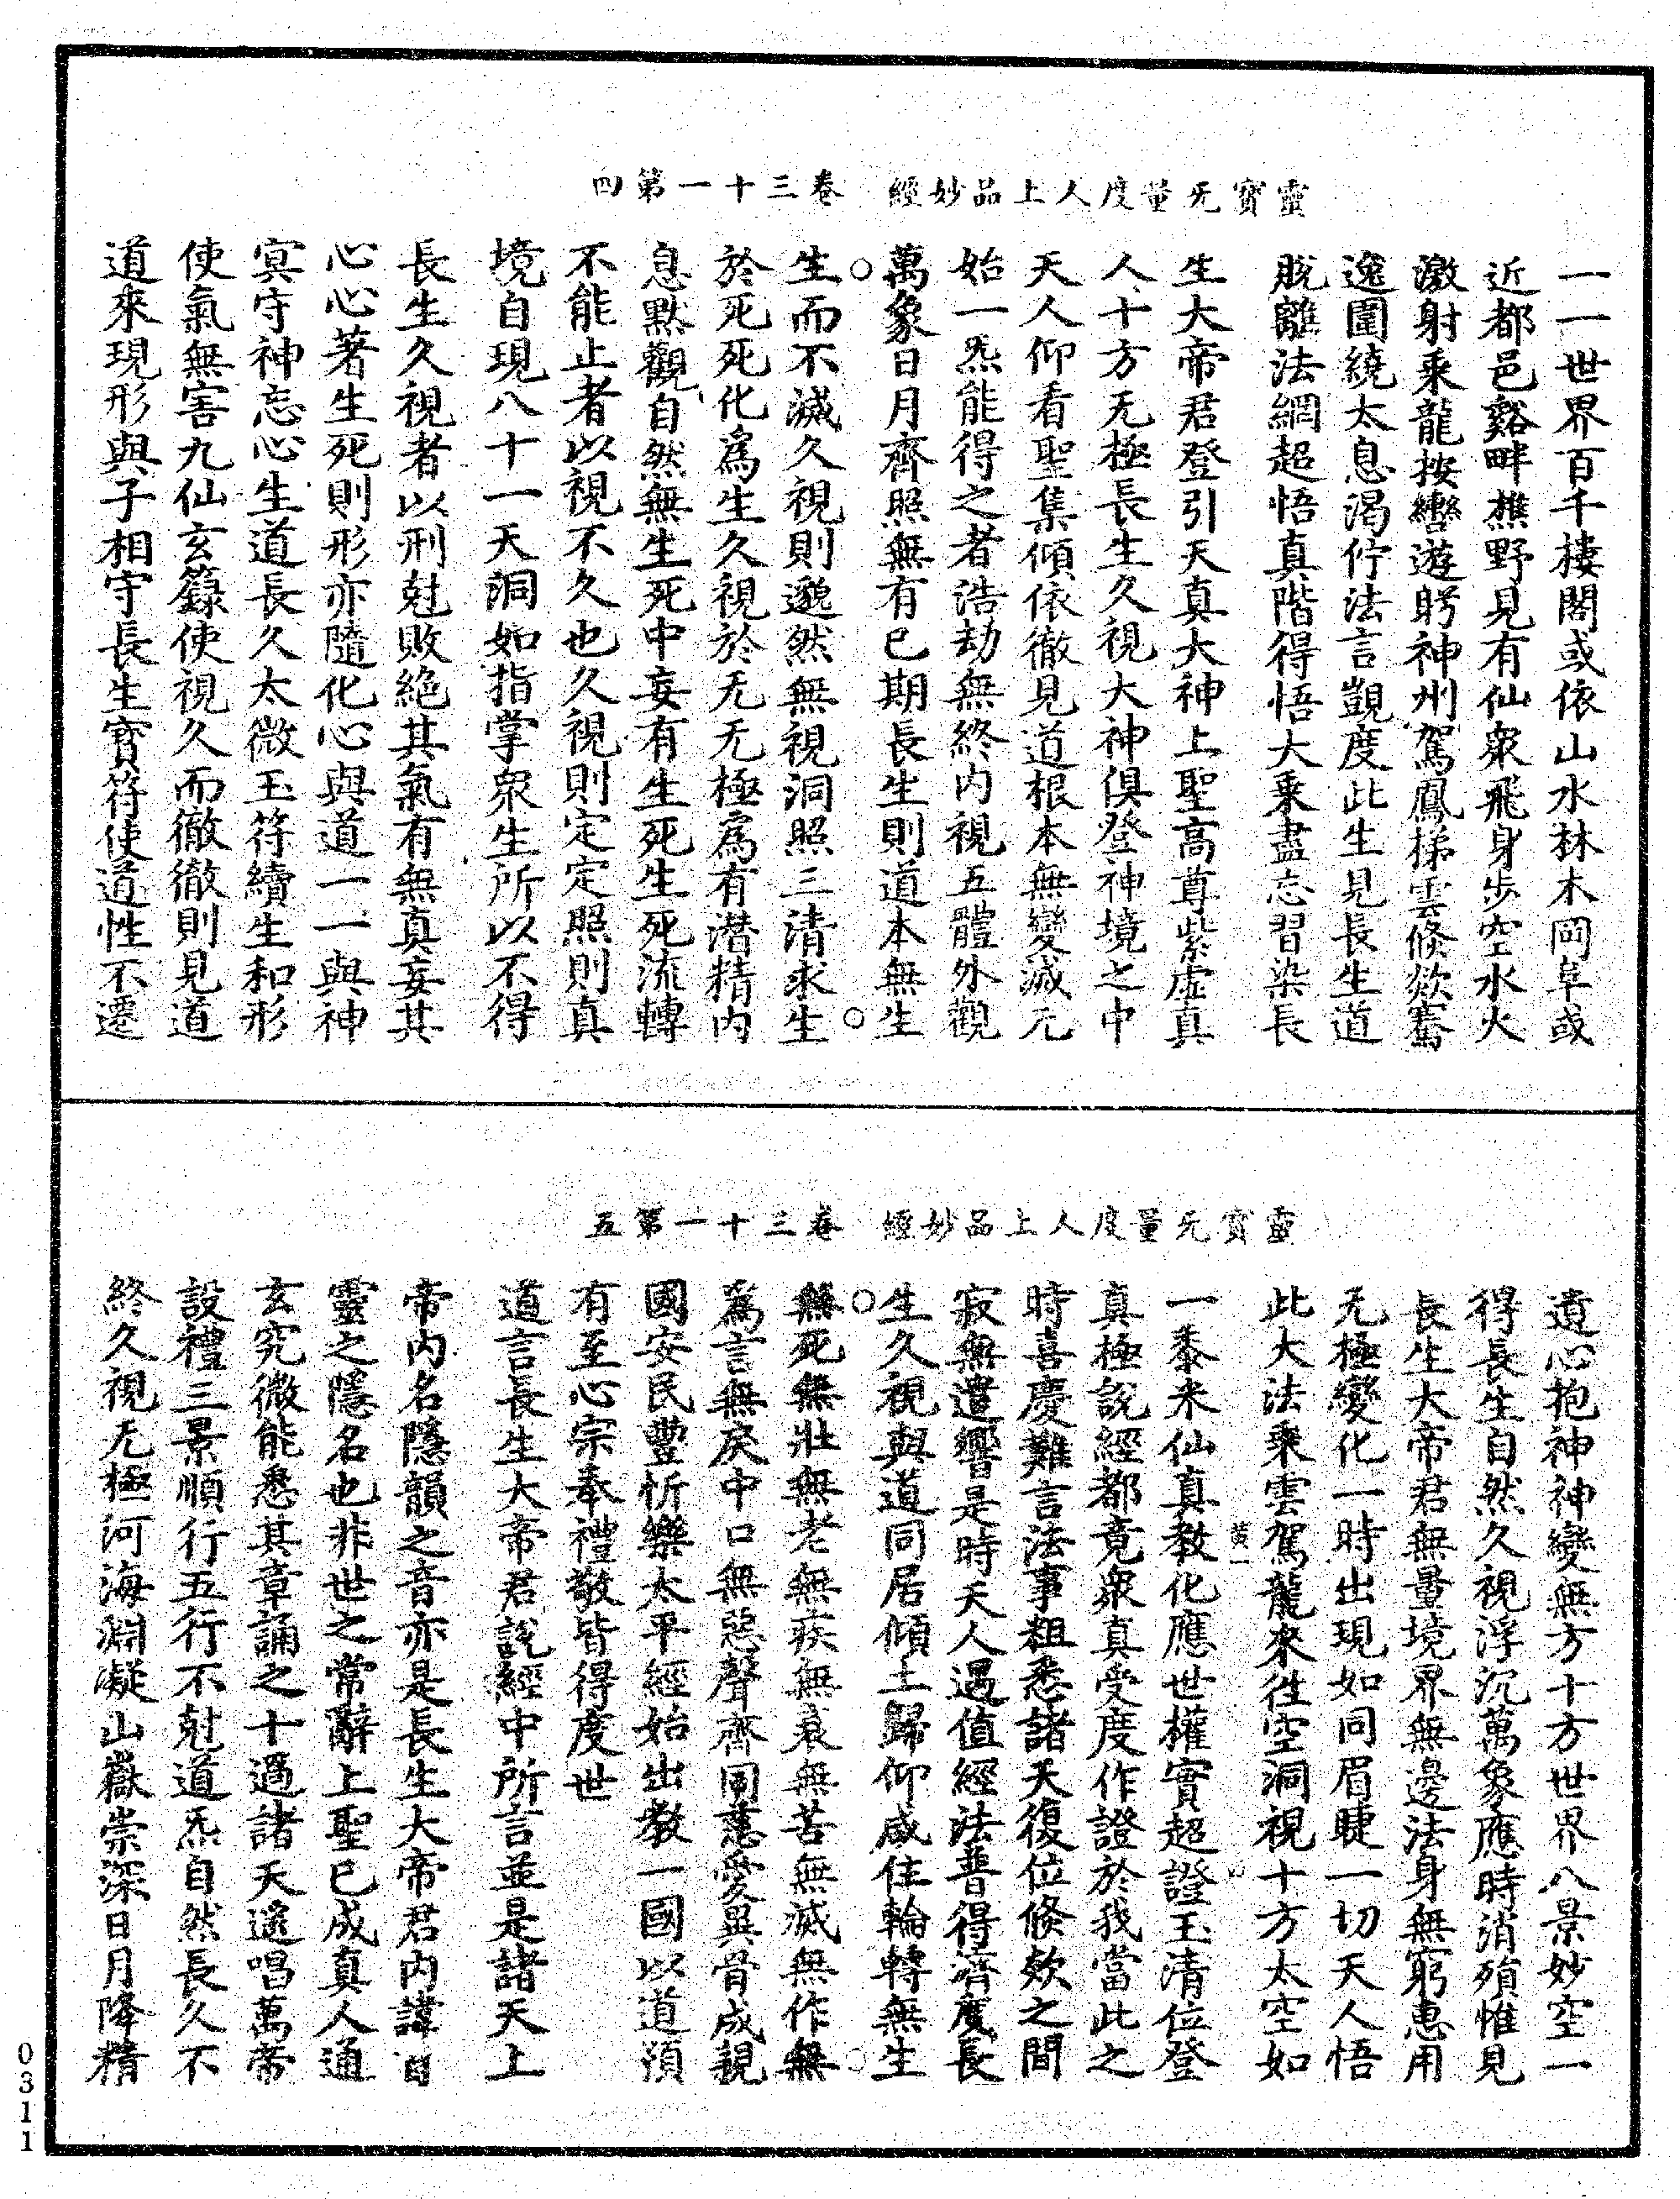 靈寶无量度人上品妙經　卷三十一第四
一一世界百千樓閣或依山水林木岡阜或
近都邑谿畔樵野見有仙衆飛身步空水火
激射乘龍按轡遊躬神州駕鳳梯雲倐欻騫
逸圍繞太息渴佇法言覬度此生見長生道
脫離法網超悟真階得悟大乘盡忘習染長
生大帝君登引天真大神上聖高尊紫虛真
人十方无極長生久視大神俱登神境之中
天人仰看聖集傾依徹見道根本無變滅元
始一炁能得之者浩劫無終內視五體外觀
萬象日月齊照無有已期長生則道本無生
生而不滅久視則邈然無視洞照三清求生
於死死化爲生久視於无无極爲有潜精內
息默觀自然無生死中妄有生死生死流轉
不能止者以視不久也久視則定定照則真
境自現八十一天洞如指掌衆生所以不得
長生久視者以刑尅敗絶其氣有無真妄其
心心著生死則形亦隨化心與道一一與神
冥守神忘心心生道長久太微玉符續生和形
使氣無害九仙玄籙使視久而徹徹則見道
道來現形與子相守長生寶符使道性不遷
靈寶无量度人上品妙經　卷三十一第五
遺心抱神神變無方十方世界八景妙空一
得長生自然久視浮沉萬象應時消殞惟見
長生大帝君無量境界無邊法身無窮惠用
无極變化一時出現如同眉睫一切天人悟
此大法乘雲駕龍來往空洞視十方太空如
黃一
一黍米仙真教化應世權實超證玉清位登
真極說經都竟衆真受度作證於我當此之
時喜慶難言法事粗悉諸天復位倐欻之間
寂無遺響是時天人遇值經法普得濟度長
生久視與道同居傾土歸仰咸住輪轉無生
無死無壯無老無疾無衰無苦無滅無作無
爲言無戾中口無惡聲齊同慈愛異骨成親
國安民豐忻樂太平經始出教一國以道預
有至心宗奉禮敬皆得度世
道言長生大帝君說經中所言並是諸天上
帝內名隱韻之音亦是長生大帝君內諱自
靈之隱名也非世之常辭上聖已成真人通
玄究微能悉其章誦之十過諸天遙唱萬帝
設禮三景順行五行不尅道炁自然長久不
終久視无極河海淵凝山嶽崇深日月降精
0311